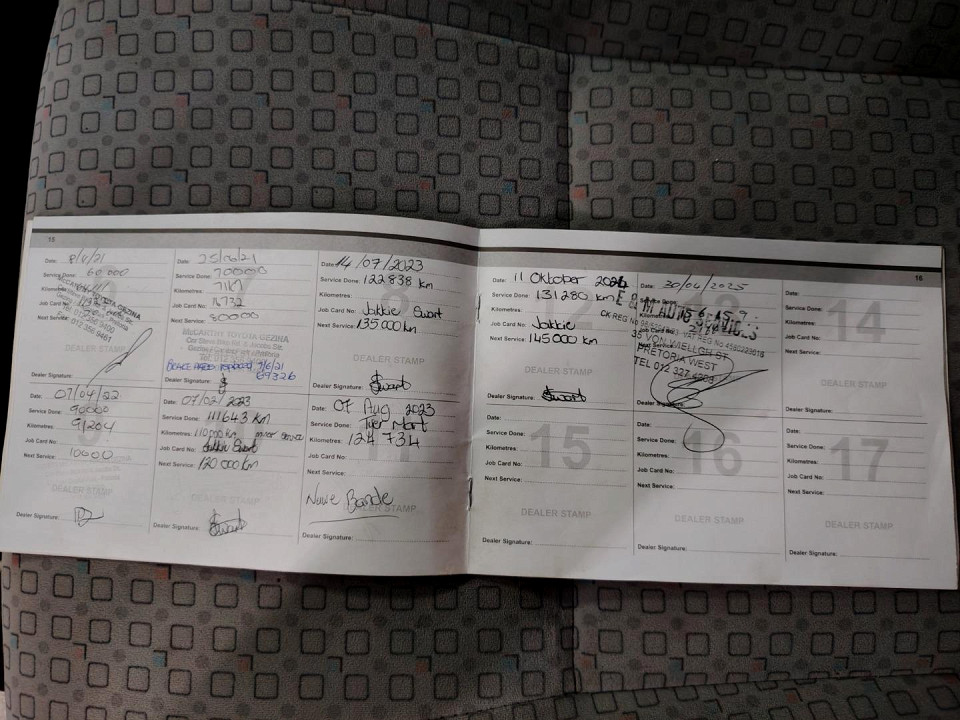 15
Date: 8/4/21
Service Done: 60 000
Kilometres:
Job Card No:
Next Service:
McCARTHY TOYOTA GEZINA
DEALER STAMP
Dealer Signature:
Date:
Service Done: 70000
Kilometres: 71K
Job Card No: 16732
Next Service: 80000
McCARTHY TOYOTA GEZINA
DEALER STAMP
Dealer Signature:
Date: 14/07/2023
Service Done: 122838 km
Kilometres:
Job Card No: Jakkie Swart
Next Service: 135000km
DEALER STAMP
Dealer Signature: Swart
Date: 07/04/22
Service Done: 90000
Kilometres: 91204
Job Card No:
Next Service:
DEALER STAMP
Dealer Signature:
Date: 07/02/2023
Service Done: 111643 km
Kilometres: 110000km minor service
Job Card No: Jakkie Swart
Next Service: 120 000 km
DEALER STAMP
Dealer Signature: Swart
11
Date: 07 Aug 2023
Service Done: Tyer Mart
Kilometres: 124 734
Job Card No:
Next Service:
Nuwe Bande
DEALER STAMP
Dealer Signature:
16
Date: 11 Oktober 2024
Service Done: 131280 km
Kilometres:
Job Card No: Jakkie
Next Service: 145000 km
DEALER STAMP
Dealer Signature: Swart
13
Date: 30/04/2025
35 VON WIELLIGH ST
PRETORIA WEST
TEL 012 327
Dealer Signature:
14
Date:
Service Done:
Kilometres:
Job Card No:
Next Service:
DEALER STAMP
Dealer Signature:
15
Date:
Service Done:
Kilometres:
Job Card No:
Next Service:
DEALER STAMP
Dealer Signature:
16
Date:
Service Done:
Kilometres:
Job Card No:
Next Service:
DEALER STAMP
Dealer Signature:
17
Date:
Service Done:
Kilometres:
Job Card No:
Next Service:
DEALER STAMP
Dealer Signature: